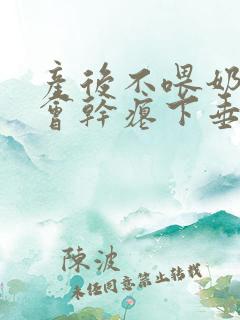 產後不喂奶
會幹癟下垂
陳波
未經同意禁止轉載